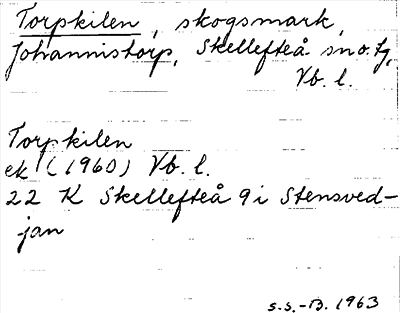 Torpkilen, skogsmark,
Johannistorp, Skellefteå sn o. tg,
Vb. l.
Torpkilen
ek (1960) Vb. l.
22 K Skellefteå 9 i Stensved-
jan
S.S.-B. 1963